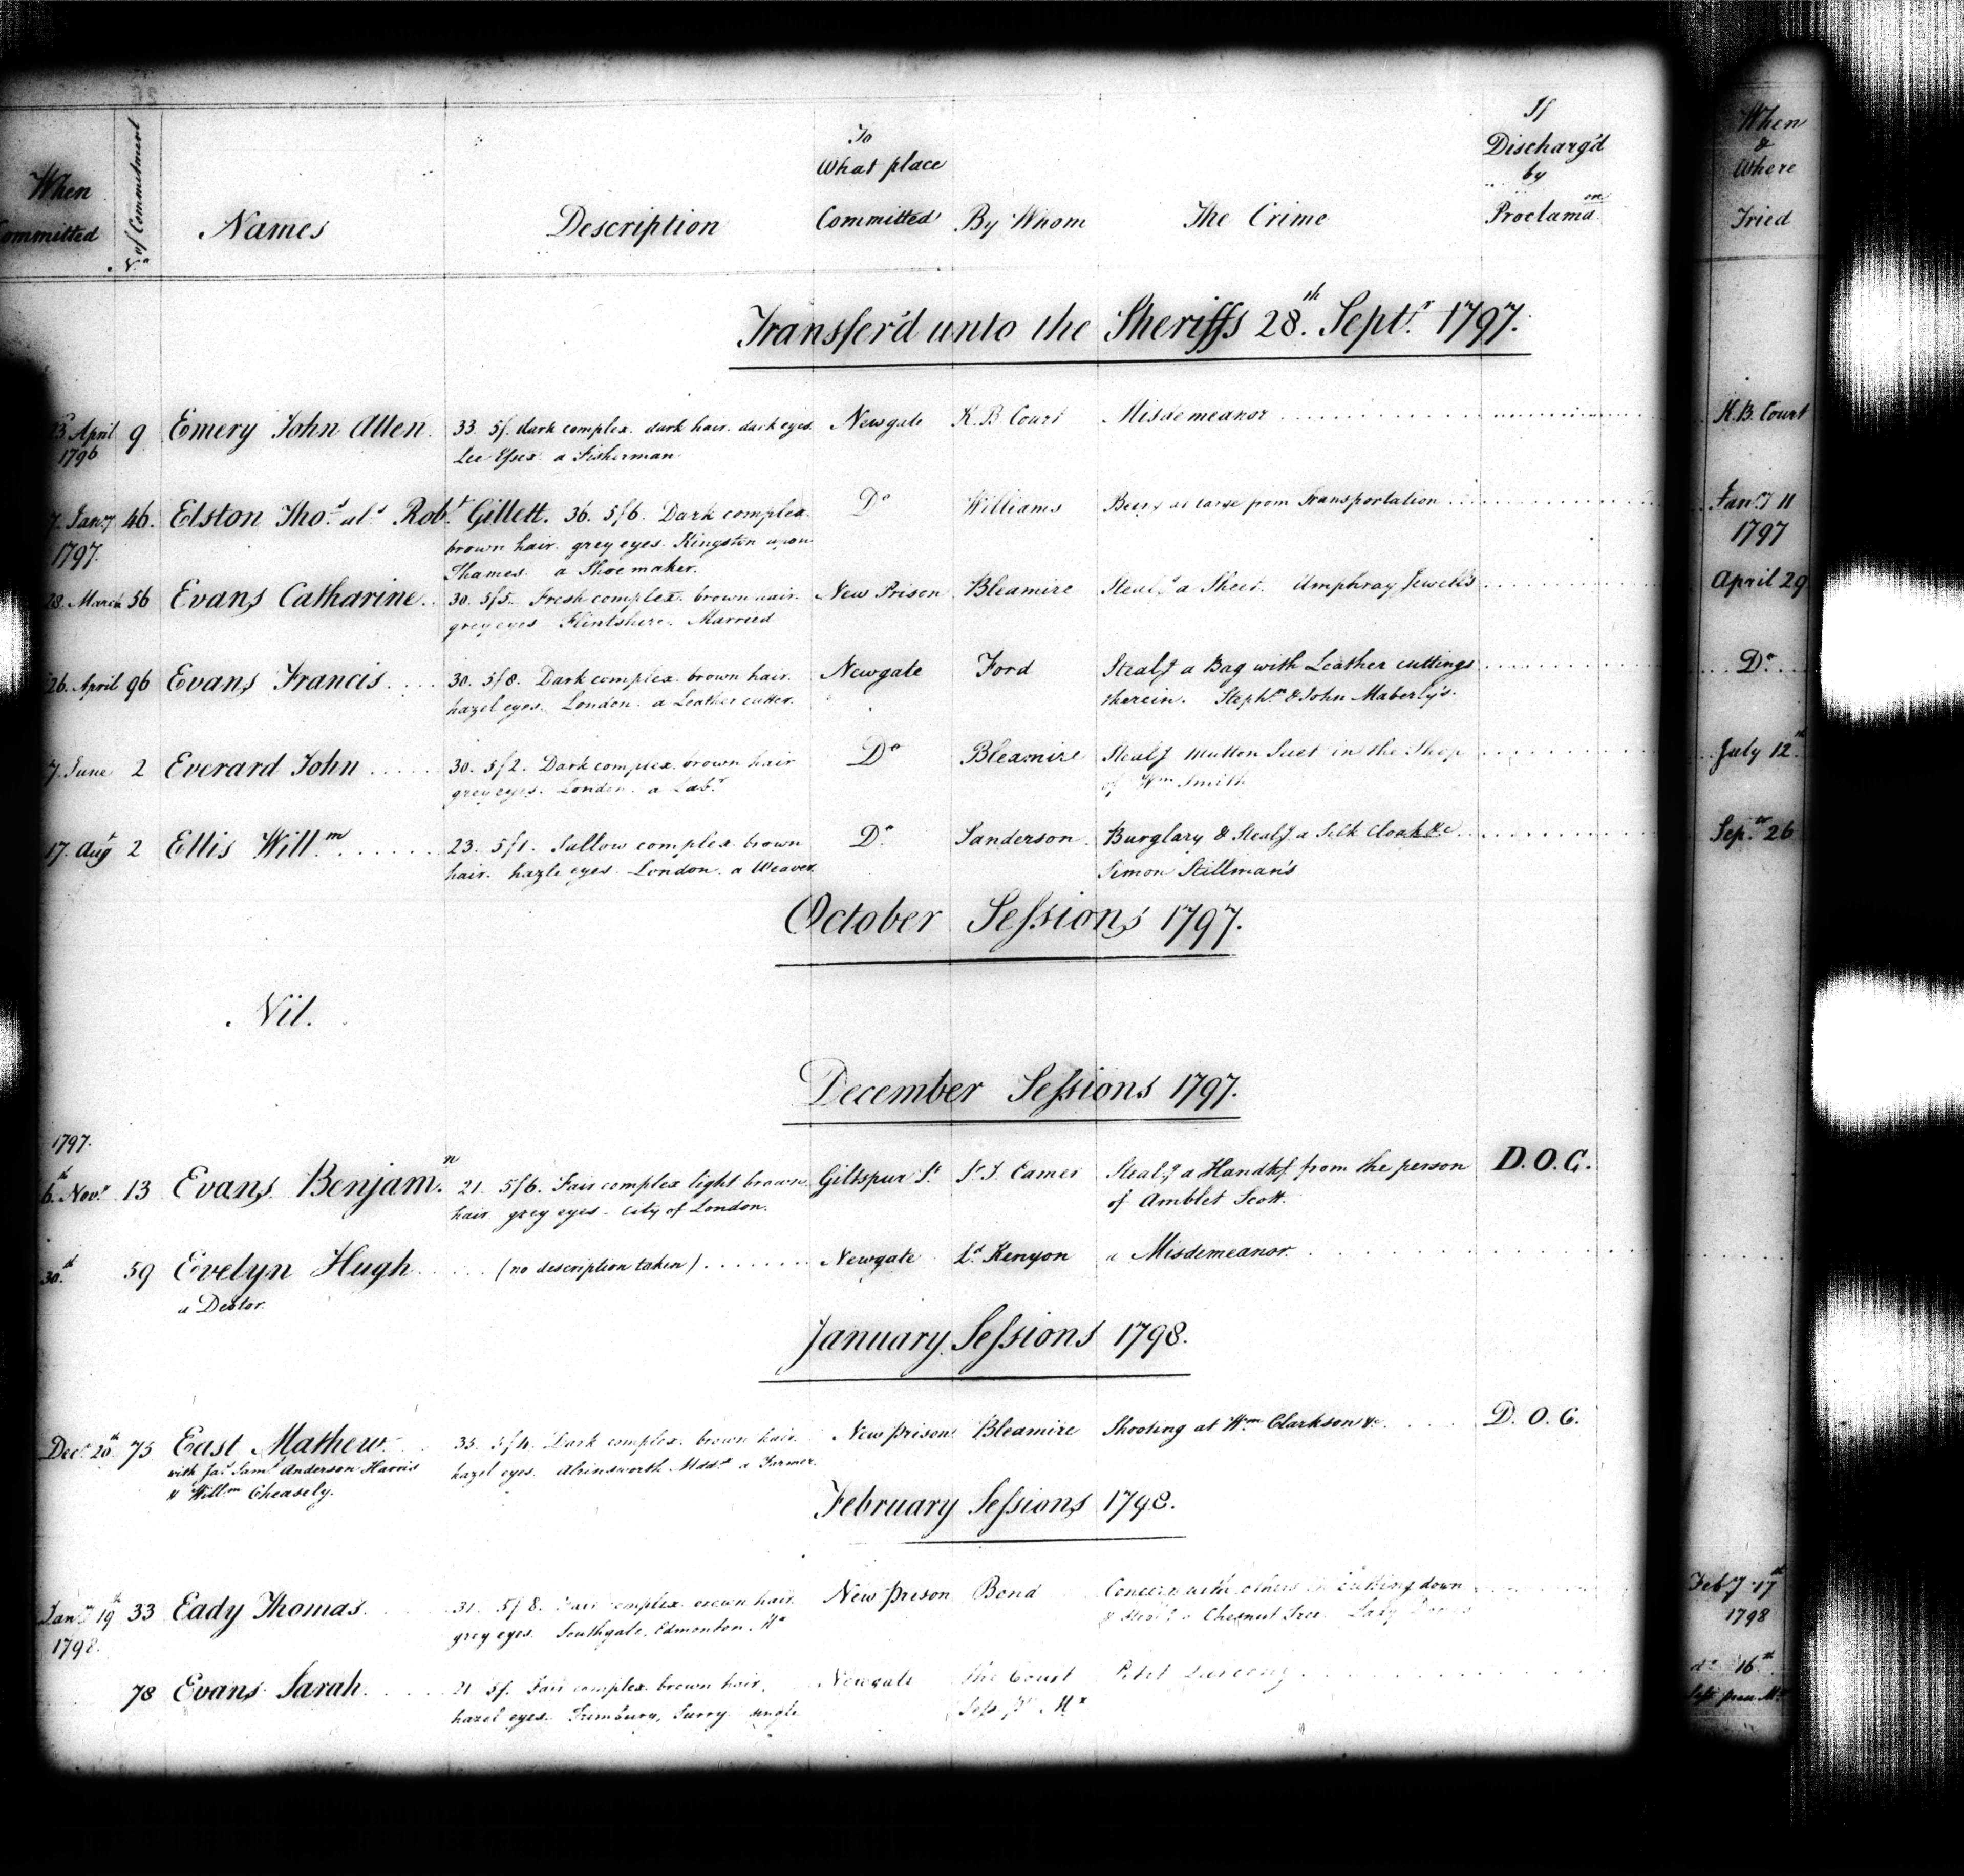 When
Committed
No. of Commitment
Names
Description
To
What place
Committed
By Whom
The Crime
If
Discharg'd
by
Proclamaon
When
&
Where
Tried
Transfer'd unto the Sheriffs 28th. Septr. 1797.
23 April 9 Emery John Allen. 33 5f. dark complex. dark hair. dark eyes. Newgate K.B Court Misdemeanor K.B. Court
1796 Lee Essex a Fisherman
7. Jany 46. Elston Thos. als. Robt. Gillett. 36. 5f6. Dark complex. Do Williams Being at large from Transportation Jany 11
1797. brown hair. grey eyes. Kingston upon 1797
Thames. a Shoemaker.
28. March 56 Evans Catharine. 30. 5f5. Fresh complex. brown hair. New Prison Bleamire Stealg a Sheet. Umphray Jewell's April 29
grey eyes Flintshire. Married
26. April 96 Evans Francis 30. 5f8. Dark complex. brown hair. Newgate Ford Stealg a Bag with Leather cuttings Do.
hazel eyes. London. a Leather cutter. therein. Stephn & John Maberly's.
7. June 2 Everard John 30. 5f2. Dark complex. brown hair Do Bleamire Stealg Mutton Suet in the Shop July 12th
grey eyes. London. a Labr. of Wm Smith
17. Augt 2 Ellis Willm. 23. 5f1. Sallow complex. brown Do. Sanderson. Burglary & Stealg a Silk Cloak &c. Sepr. 26
hair. hazle eyes. London. a Weaver. Simon Stillman's
October Sessions 1797.
Nil.
December Sessions 1797.
1797.
6th. Novr. 13 Evans Benjamn. 21. 5f6. Fair complex light brown Giltspur St. Sr J. Eamer Stealg a Handkf from the person D.O.C.
hair grey eyes. City of London. of Amblet Scott.
30th. 59 Evelyn Hugh (no description taken) Newgate Ld. Kenyon a Misdemeanor.
a Debtor.
January Sessions 1798.
Decr 20th 75 East Mathew 35. 5f4. Dark complex. brown hair. New prison Bleamire Shooting at Wm Clarkson &c D. O. C.
with Jas. Saml. Anderson Harris hazel eyes. Mddx a Farmer.
& Willm Cheasely.
February Sessions 1798.
Jany 19th 33 Eady Thomas. 31. 5f8. Fair complex. brown hair. New prison Bond Concern'd with others in cutting down Feby 17th
1798. grey eyes. Southgate, Edmonton. Mx & a Chesnut Tree Lady 1798
78 Evans Sarah. 21 5f. Fair complex. brown hair, Newgate The Court Petit Larceny do 16th
hazel eyes. Surry. single Sess. Mx